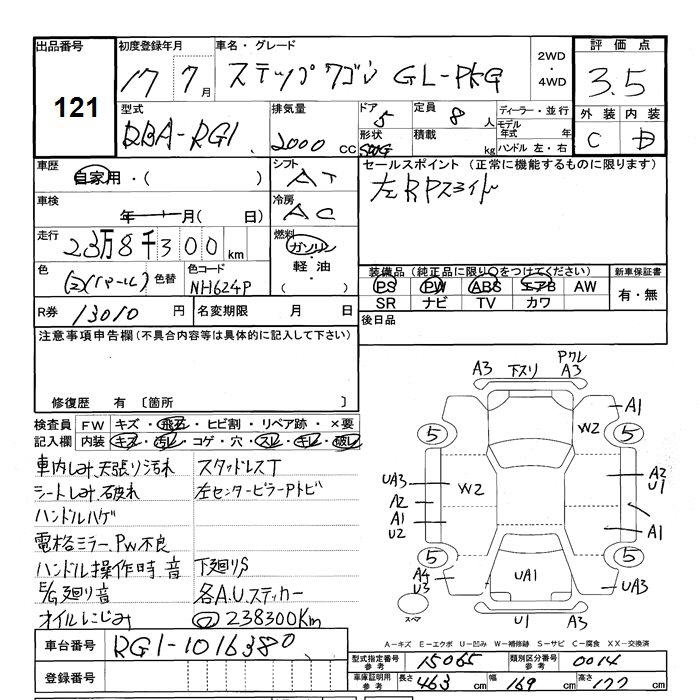 出品番号 初度登録年月 車名・グレード 2WD・4WD 評価点
121 17 7月 ステップワゴン GL-PKG 3.5
型式 排気量 ドア 5 定員 8人 ディーラー・並行 外装 内装
RBA-RG1 2000 CC 形状 積載 kg モデル年式 年 C D
ハンドル 左・右
車歴 自家用・( ) シフト AT セールスポイント (正常に機能するものに限ります)
車検 年 月( 日) 冷房 AC 左RPスライド
走行 23万8千300km 燃料 ガソリン・軽油・( )
装備品(純正品に限り○をつけてください) 新車保証書
色 色替 色コード NH624P PS PW ABS エアB AW 有・無
SR ナビ TV カワ
R券 13010円 名変期限 月 日 後日品
注意事項申告欄(不具合内容等は具体的に記入して下さい)
修復歴 有 〔箇所 〕
検査員記入欄 FW キズ・飛石・ヒビ割・リペア跡・×要
内装 キズ・汚レ・コゲ・穴・スレ・キレ・破レ
車内しみ.天張り汚れ スタッドレスT
シートしみ.破れ 左センターピラーPトビ
ハンドルハゲ
電格ミラー.PW不良
ハンドル操作時.音 下廻りS
E/G廻り音 各A.Uステッカー
オイルにじみ 238300Km
A3 下スリ Pクレ A3
A1
5 W2 5
UA3 A2 U1
A2 W2
A1 A1
U2
5 5
A4 U3 UA1 UA3
スペア U1 A3
A-キズ E-エクボ U-凹み W-補修跡 S-サビ C-腐食 XX-交換済
車台番号 RG1-1016380
型式指定番号 参考 15065 類別区分番号 参考 0014
登録番号 車庫証明用 参考 長さ 463cm 幅 169cm 高さ 177cm